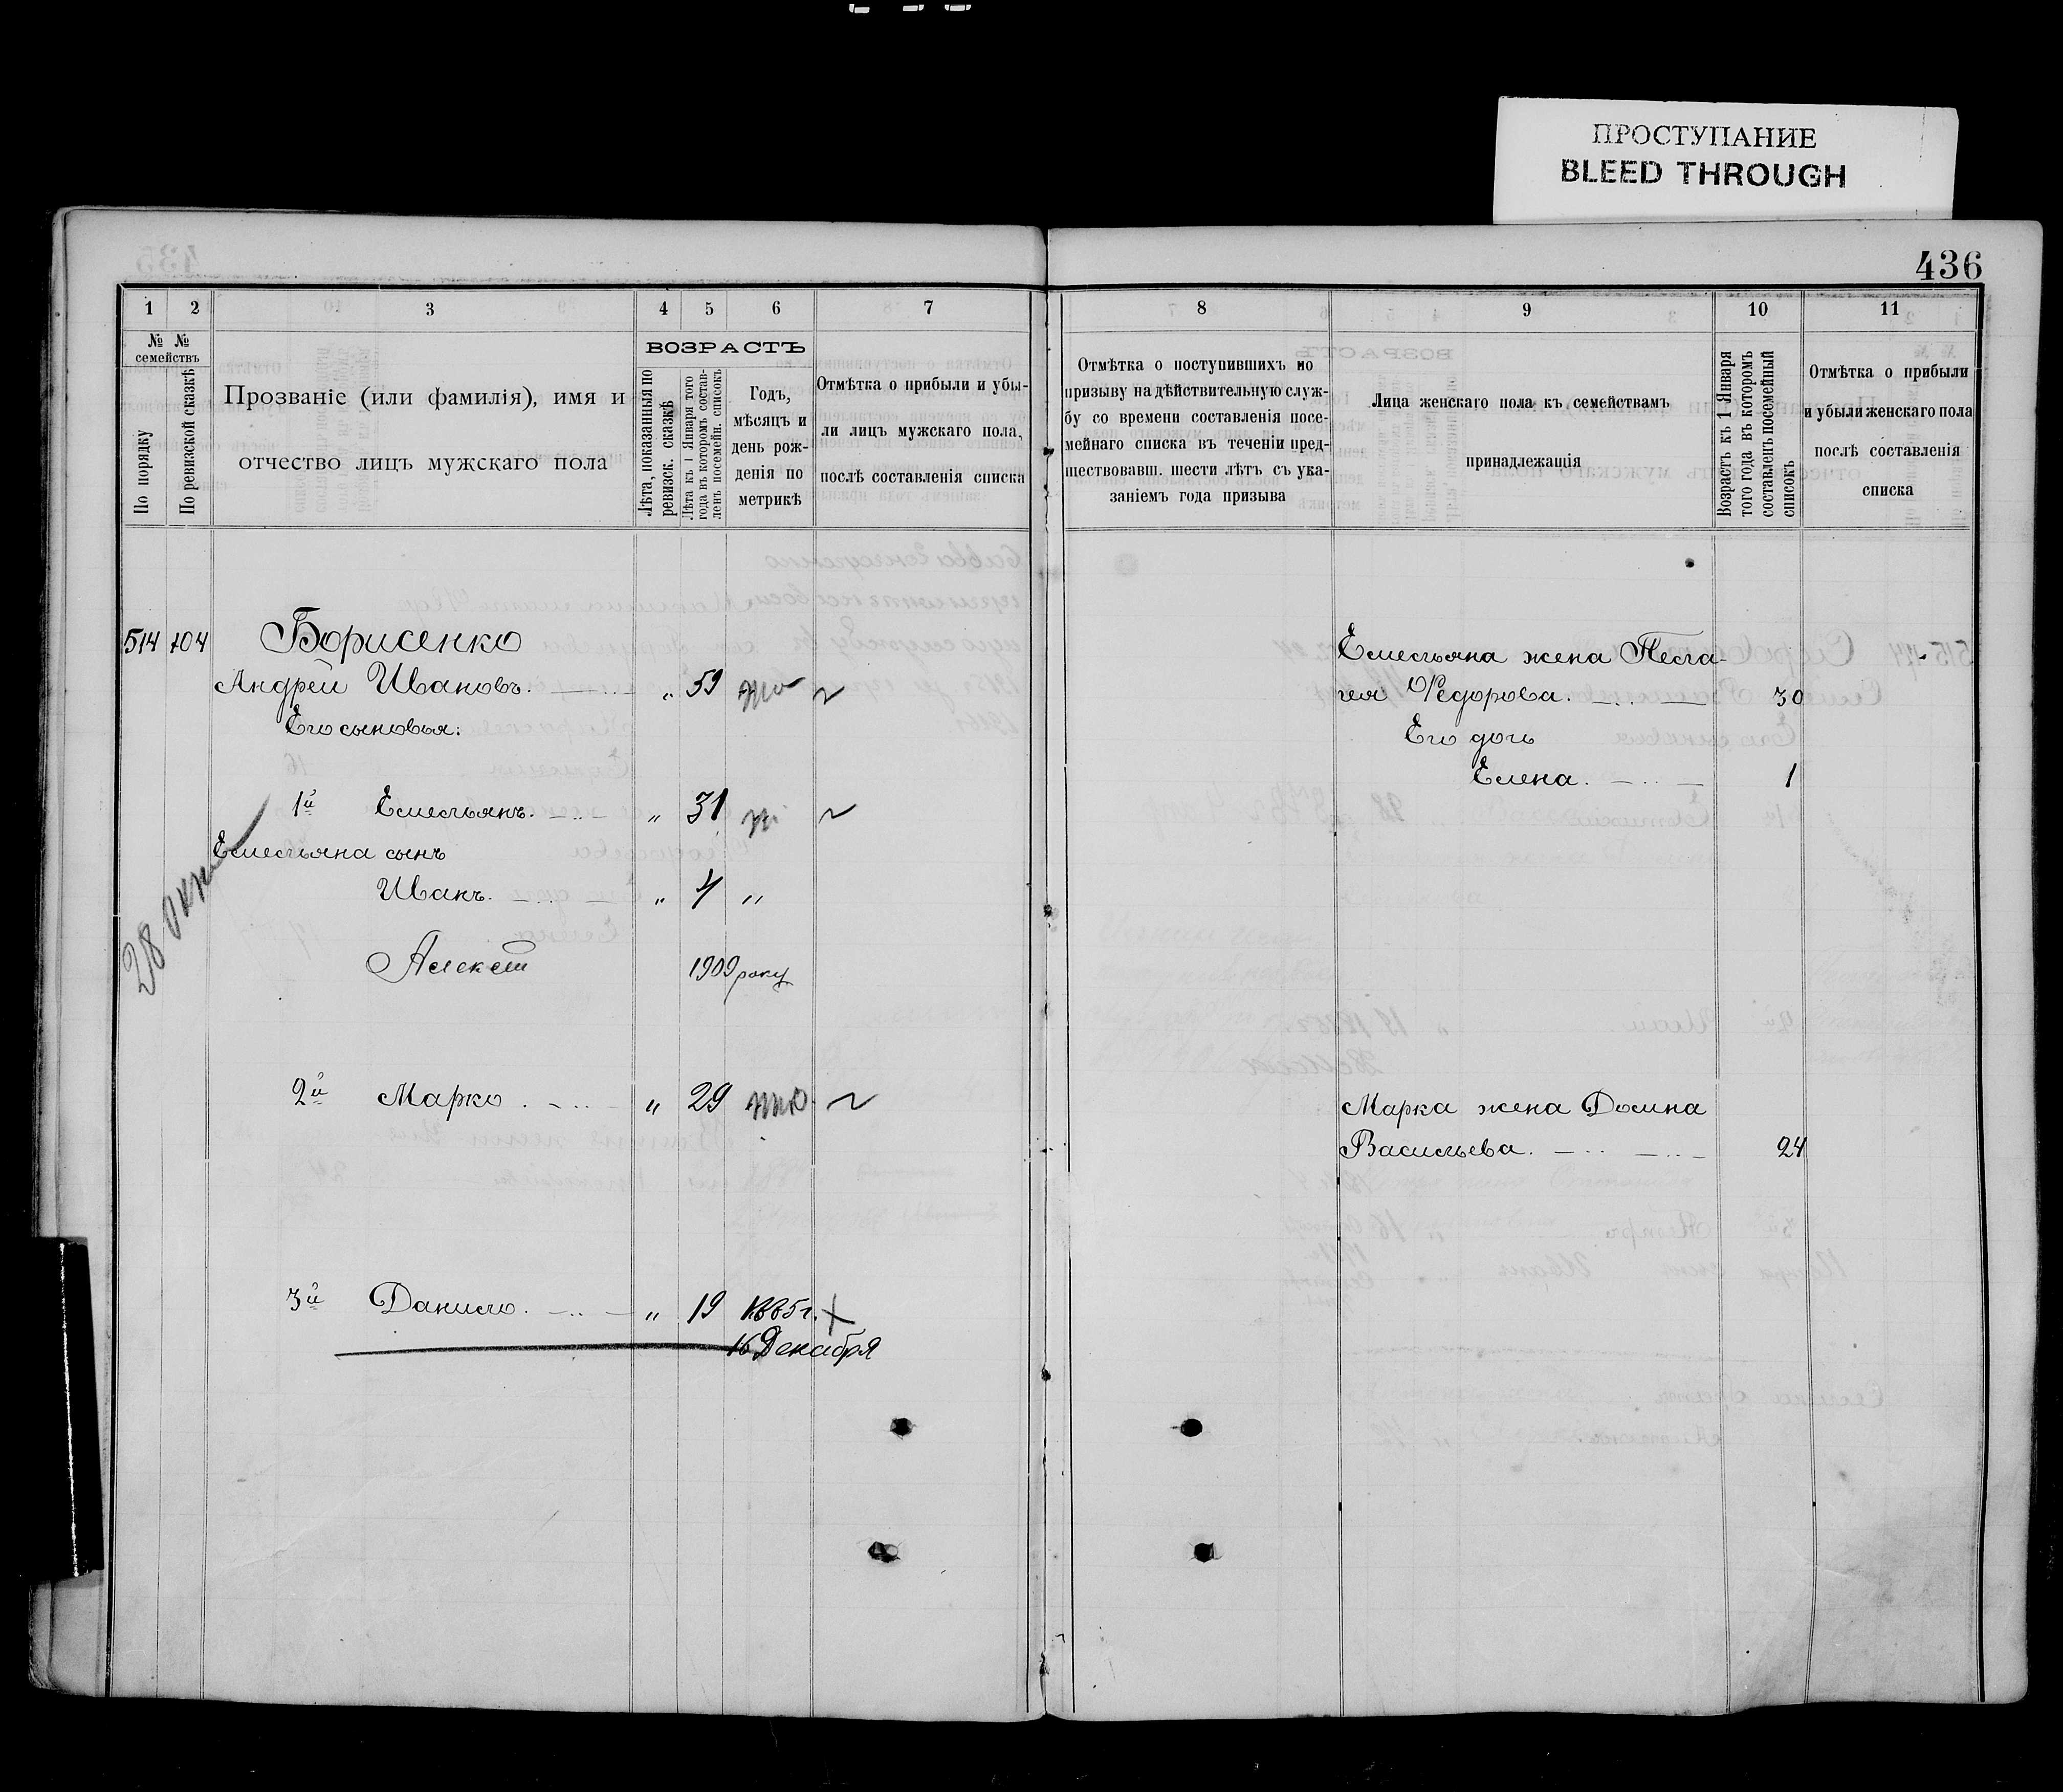 ПРОСТУПАНИЕ
BLEED THROUGH
436
1 2 3 4 5 6 7
№ №
семействъ
По порядку
По ревизской сказкѣ
Прозваніе (или фамилія), имя и
отчество лицъ мужскаго пола
ВОЗРАСТЪ
Лѣта, показанныя по
ревизск. сказкѣ
Лѣта къ 1 Января того
года въ которомъ состав-
ленъ посемейн. списокъ
Годъ,
мѣсяцъ и
день рож-
денія по
метрикѣ
Отмѣтка о прибыли и убы-
ли лицъ мужскаго пола,
послѣ составленія списка
514 104 Борисенко
Андрей Ивановъ. " 59
Его сыновья:
1й Емельянъ. " 31
Емельяна сынъ
Иванъ. " 4 "
Алексѣй 1909 року
2й Марко. " 29
3й Данило. " 19 1885 г. х
16 Декабря
8 9 10 11
Отмѣтка о поступившихъ по
призыву на дѣйствительную служ-
бу со времени составленія посе-
мейнаго списка въ теченіи пред-
шествовавш. шести лѣтъ съ ука-
заніемъ года призыва
Лица женскаго пола къ семействамъ
принадлежащія
Возрастъ къ 1 Января
того года въ которомъ
составленъ посемейный
списокъ
Отмѣтка о прибыли
и убыли женскаго пола
послѣ составленія
списка
Емельяна жена Пела-
гея Федорова. 30
Его дочь
Елена. 1
Марка жена Домна
Васильева. 24